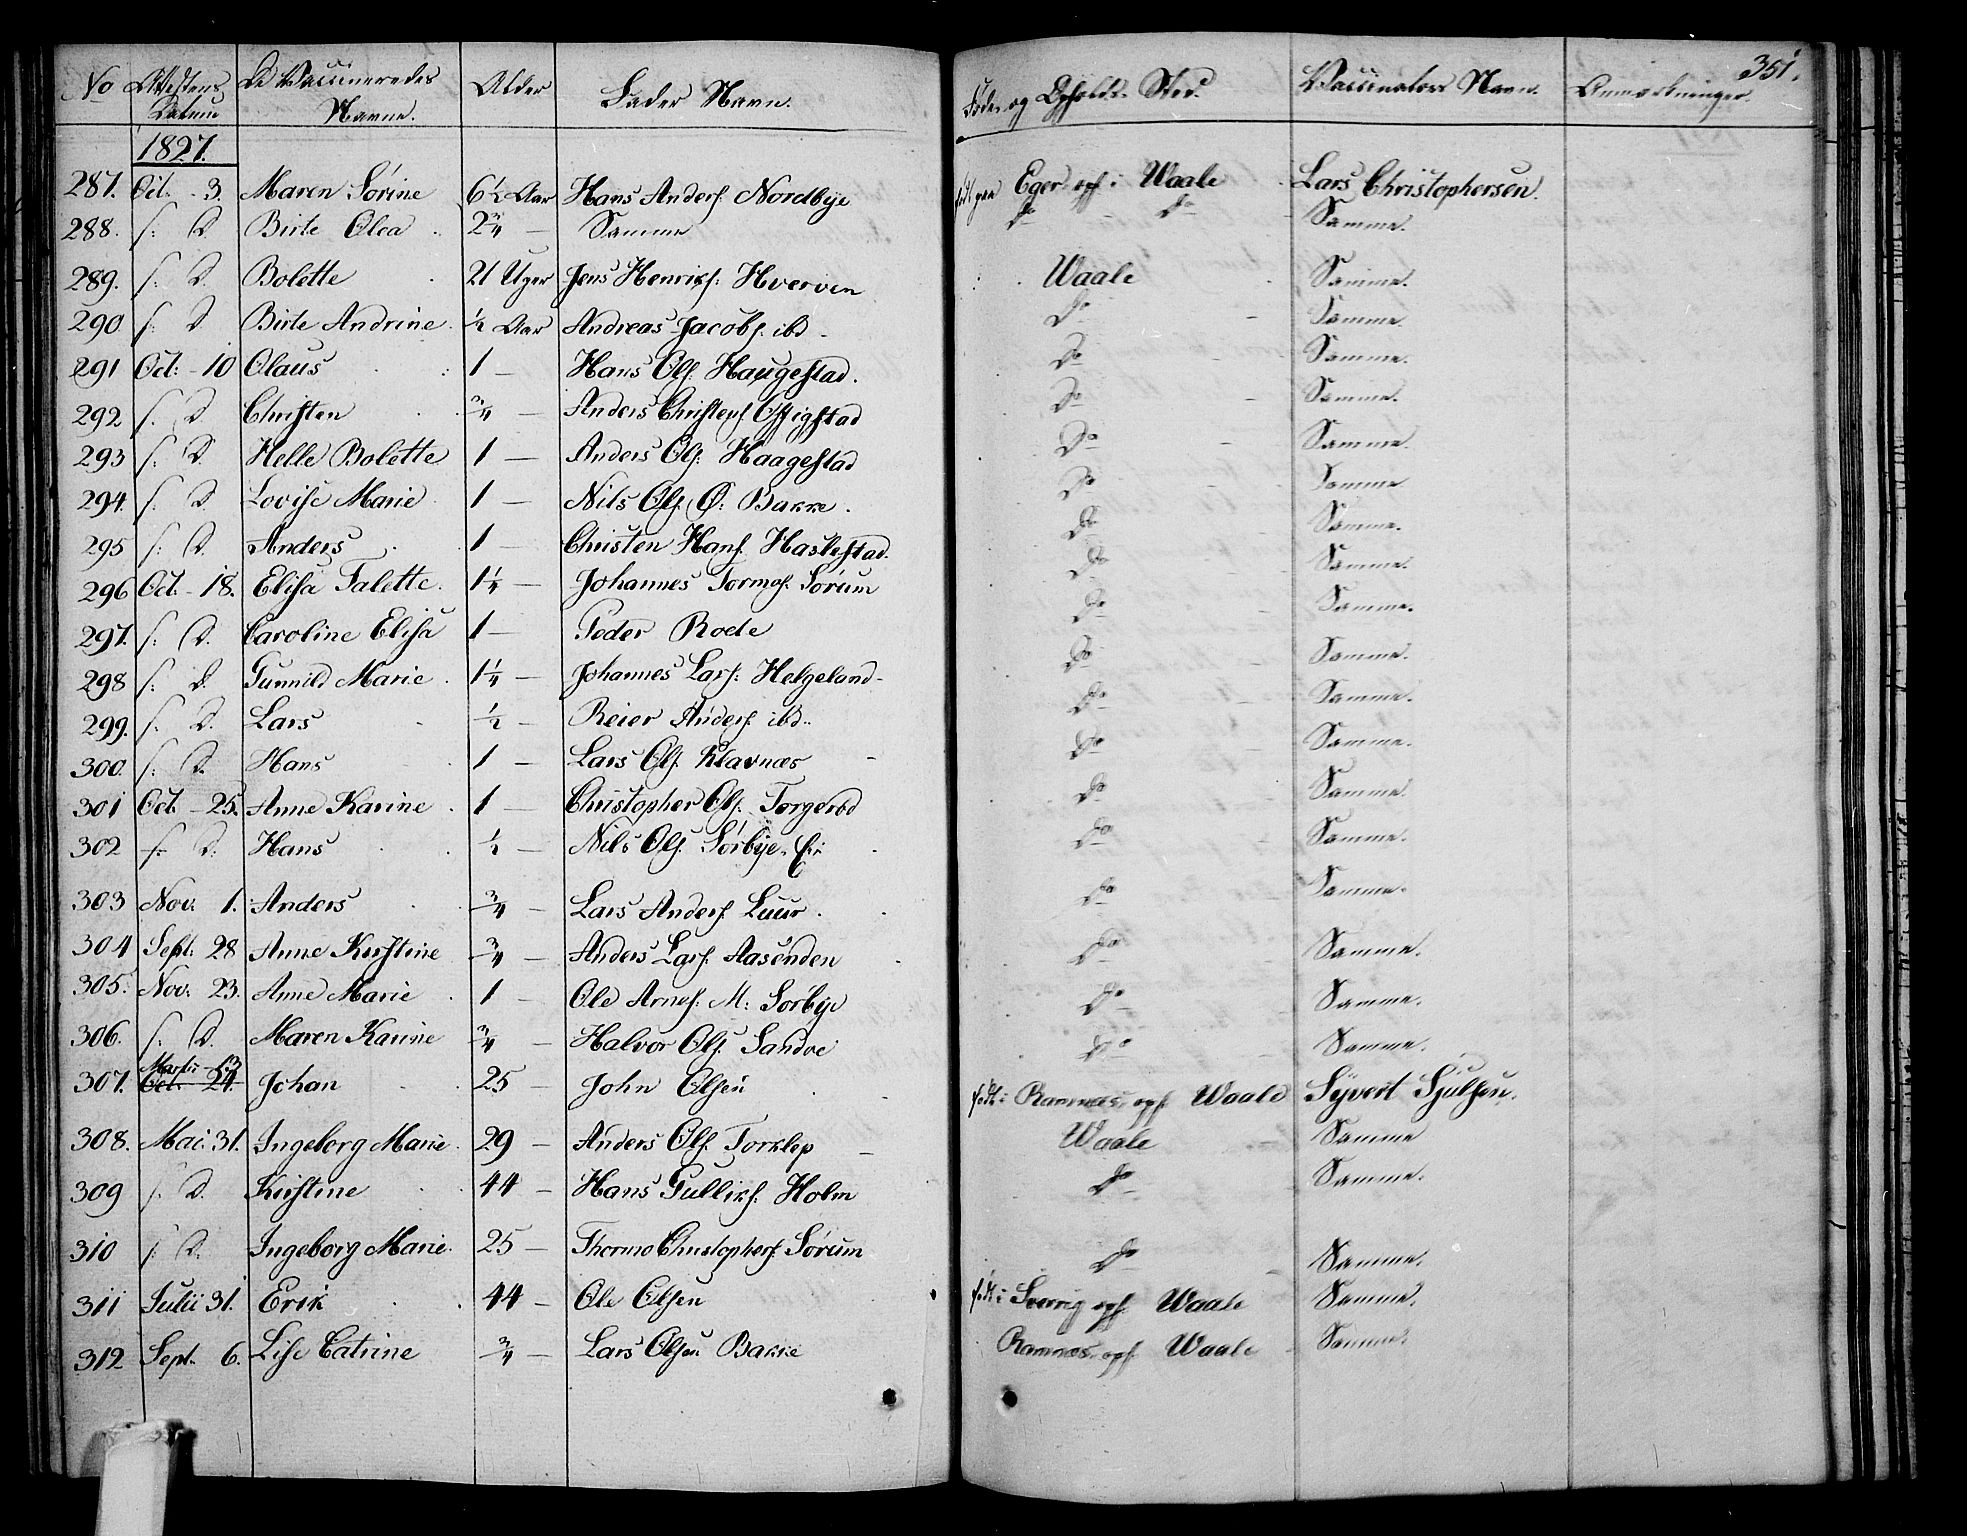 351.
No Attestens Datum De Vaccineredes Navne. Alder Fader Navn. Føde- og Opholds Sted. Vaccinators Navn. Anmærkninger.
1827.
287. Oct. - 3. Maren Sørine 6½ Aar Hans Anders. Nordbye født paa Eger oph. i Waale Lars Christophersen.
288. s. D. Birte Olea 2¾ — Samme do - do - Samme.
289. s. D. Bolette 21 Uger Jens Henriks. Hverven Waale Samme.
290 s. D Birte Andrine ½ Aar Andreas Jacobs. ibd. Do - Samme.
291 Oct. - 10 Olaus 1 — Hans Ols. Haugestad. Do - Samme.
292 s. D. Christen ¾ — Anders Christens. Do - Samme.
293 s. D. Helle Bolette 1 — Anders Ols. Haagestad Do - Samme.
294. s. D. Lovise Marie 1 — Nils Ols. Ø. Bakke. Do Samme.
295 s. D. Anders 1 — Christen Hans. Haslestad. Do Samme.
296 Oct. - 18. Elisa Talette. 1¼ — Johannes Tormos. Sørum Do - Samme.
297. s. D. Caroline Elisa 1 — Peder Roete Do - Samme.
298 s. D. Gunnild Marie 1¼ — Johannes Lars. Helgeland - Do - Samme.
299. s. D. Lars ½ — Reier Anders. ibd. Do - Samme.
300. s. D. Hans 1 — Lars Ols. Klavnæs Do - Samme.
301 Oct. - 25. Anne Karine 1 — Christopher Ols. Torgerød Do Samme.
302 s. D. Hans ½ — Nils Ols. Sørbye. Do Samme.
303 Nov. 1. Anders ¾ — Lars Anders. Luur. Do Samme.
304 Sept. 28 Anne Kirstine ¾ — Anders Lars. Aasenden Do - Samme.
305. Nov. 23. Anne Marie 1 — Ole Arnes. M. Sørbye Do Samme.
306. s. D. Maren Karine ¾ — Halvor Ols. Sandve Do Samme.
307. Oct. 24. Johan 25 — John Olsen født i Ramnæs, oph. Waale Syvert Sjulsen.
308. Mai 31. Ingeborg Marie 29 — Anders Ols. Torklep Waale Samme
309 s. D. Kirstine 44 — Hans Gulliks. Holm Do Samme.
310 s. D. Ingeborg Marie. 25 — Thormo Christophers. Sørum Do Samme.
311 Julii 31. Erik 44 — Ole Olsen født i Sverrig oph. Waale Samme.
312 Sept. 6. Lise Catrine ¾ — Lars Olsen Bakke Ramnæs, oph. Waale Samme.